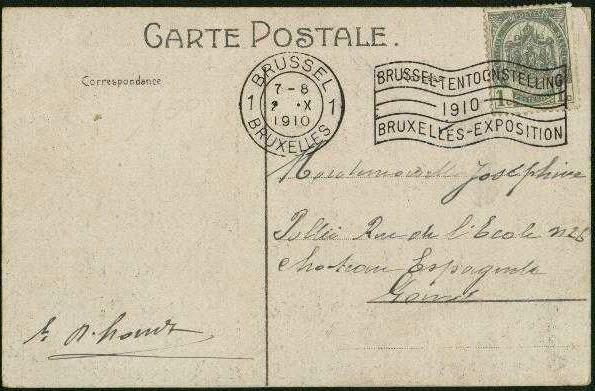 CARTE POSTALE.
Correspondance
BRUSSEL
1 7-8 1
X
1910
BRUXELLES
BRUSSEL-TENTOONSTELLING
1910
BRUXELLES-EXPOSITION
1 1
Mademoiselle Joséphine
Rue de l'Ecole
Chateau Espagnole